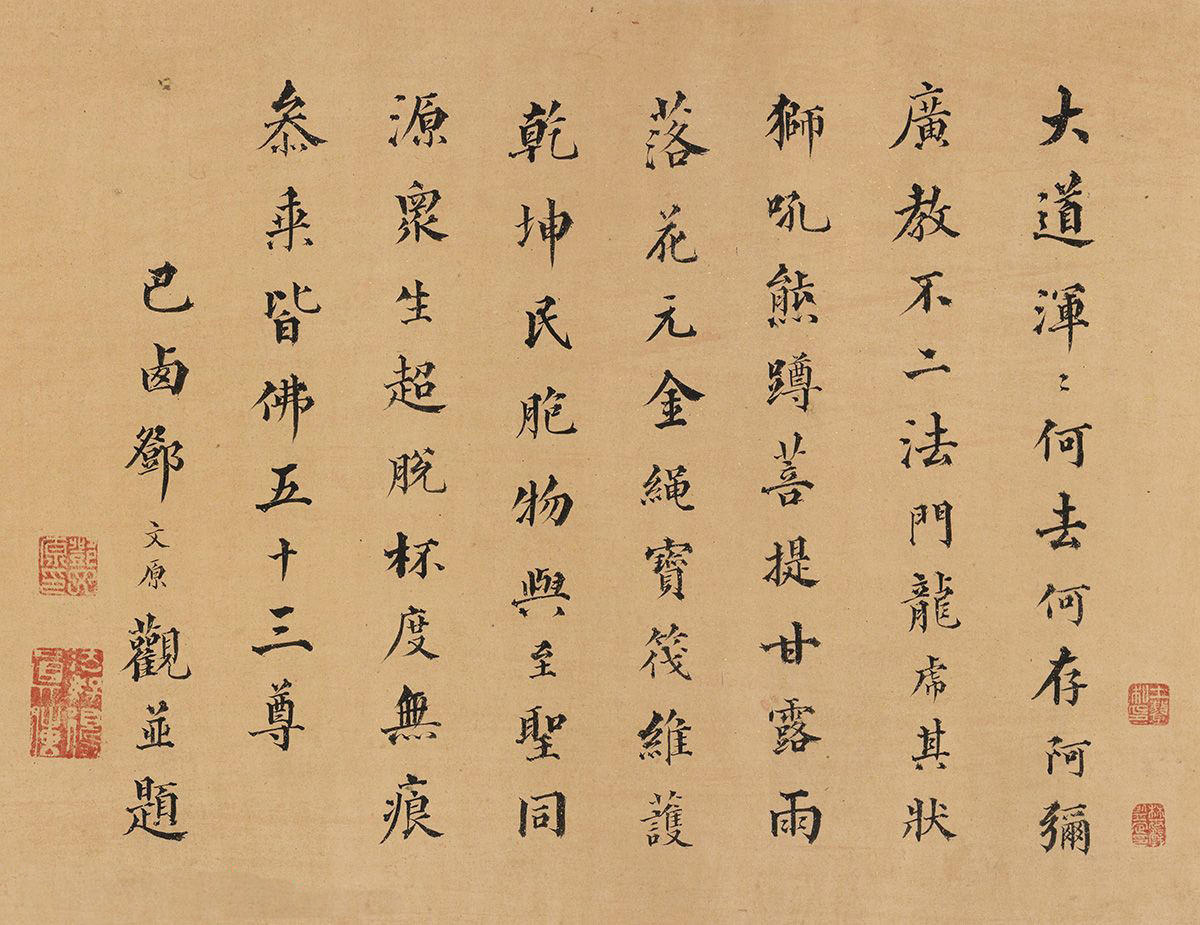 大道渾〻何去何存阿彌
廣教不二法門龍虎其狀
獅吼熊蹲菩提甘露雨
落花元金繩寶筏維護
乾坤民胞物與至聖同
源眾生超脫杯度無痕
叅來皆佛五十三尊
巴鹵鄧文原觀並題